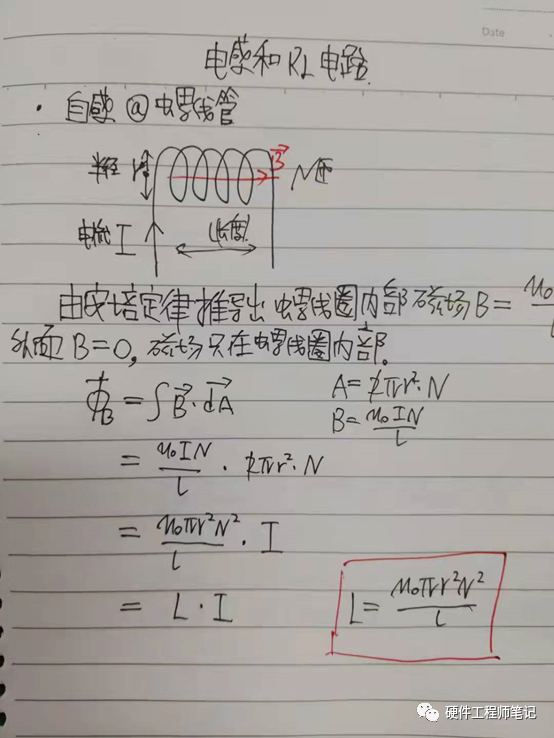 Date
电感和RL电路
· 自感@螺线管
半径 r B⃗ N匝
电流 I l(长度)
由安培定律推导出螺线圈内部磁场B = μ₀
外面B=0,磁场只在螺线圈内部.
Φ_B = ∫B⃗·dA⃗ A = πr²·N
B = μ₀IN/l
= μ₀IN/l · πr²·N
= μ₀πr²N²/l · I
= L·I L = μ₀πr²N²/l
硬件工程师笔记